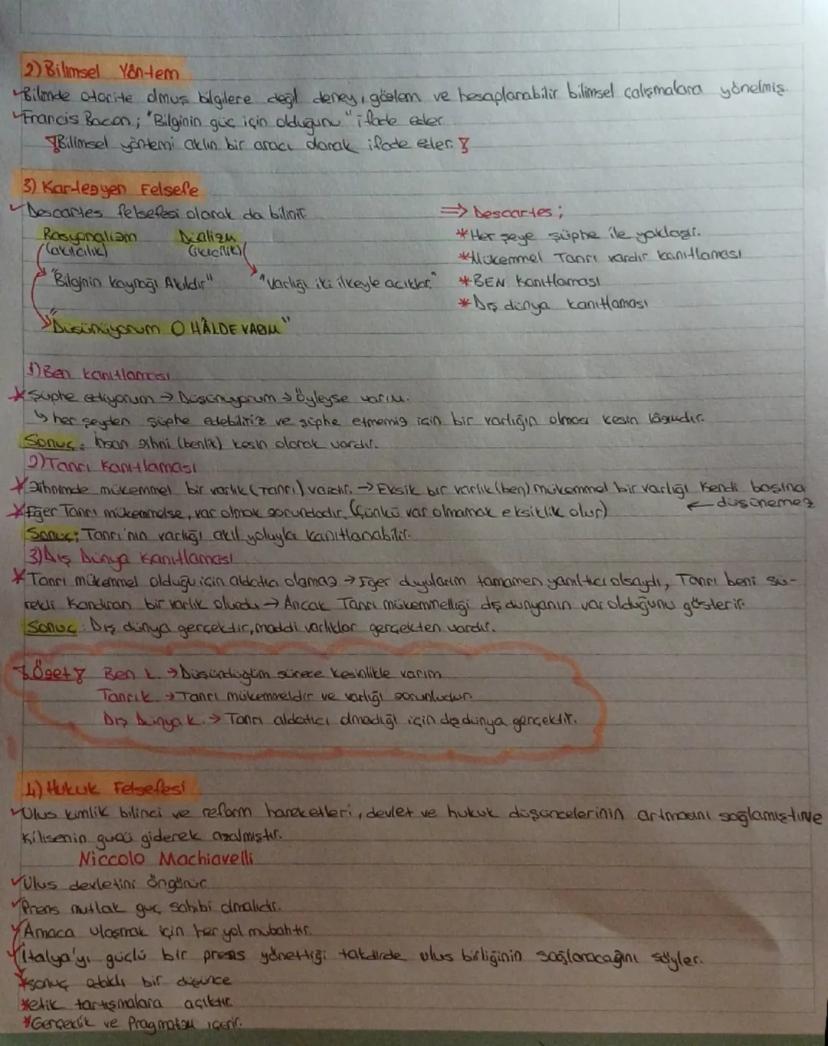 2) Bilimsel Yöntem
Bilimde otorite olmuş bilgilere değil deney, gözlem ve hesaplanabilir bilimsel çalışmalara yönelmiş.
Francis Bacon; "Bilginin güç için olduğunu" ifade eder
Bilimsel yöntemi aklın bir aracı olarak ifade eder.
3) Kartezyen Felsefe
Descartes felsefesi olarak da bilinir
Rasyonalizm Dualizm
(akılcılık) (ikicilik)
"Bilginin kaynağı Akıldır" "Varlığı iki ilkeyle açıklar."
"Düşünüyorum O HÂLDE VARIM"
⇒ Descartes;
*Her şeye şüphe ile yaklaşır.
*Mükemmel Tanrı vardır kanıtlaması
*BEN Kanıtlaması
*Dış dünya kanıtlaması
1) Ben kanıtlaması
* Şüphe ediyorum → Düşünüyorum → Öyleyse varım.
↳ her şeyden şüphe edebiliriz ve şüphe etmemiz için bir varlığın olması kesin lazımdır.
Sonuç: İnsan zihni (benlik) kesin olarak vardır.
2) Tanrı Kanıtlaması
* Zihnimde mükemmel bir varlık (Tanrı) vardır. → Eksik bir varlık (ben) mükemmel bir varlığı kendi başına düşünemez
* Eğer Tanrı mükemmelse, var olmak zorundadır. (Çünkü var olmamak eksiklik olur)
Sonuç; Tanrı'nın varlığı akıl yoluyla kanıtlanabilir.
3) Dış Dünya Kanıtlaması
* Tanrı mükemmel olduğu için aldatıcı olamaz → Eğer duyularım tamamen yanıltıcı olsaydı, Tanrı beni sü-
rekli kandıran bir varlık olurdu → Ancak Tanrı mükemmelliği dış dünyanın var olduğunu gösterir.
Sonuç: Dış dünya gerçektir, maddi varlıklar gerçekten vardır.
Özet Ben k. → Düşündüğüm sürece kesinlikle varım
Tanrı k. → Tanrı mükemmeldir ve varlığı zorunludur.
Dış Dünya k. → Tanrı aldatıcı olmadığı için dış dünya gerçektir.
4) Hukuk Felsefesi
Ulus kimlik bilinci ve reform hareketleri, devlet ve hukuk düşüncelerinin artmasını sağlamıştır ve
kilisenin gücü giderek azalmıştır.
Niccolo Machiavelli
Ulus devletini öngörür
Prens mutlak güç sahibi olmalıdır.
Amaca ulaşmak için her yol mubahtır.
İtalya'yı güçlü bir prens yönettiği takdirde ulus birliğinin sağlanacağını söyler.
*sonuç odaklı bir düşünce
*etik tartışmalara açıktır
*Gerçeklik ve Pragmatizm içerir.